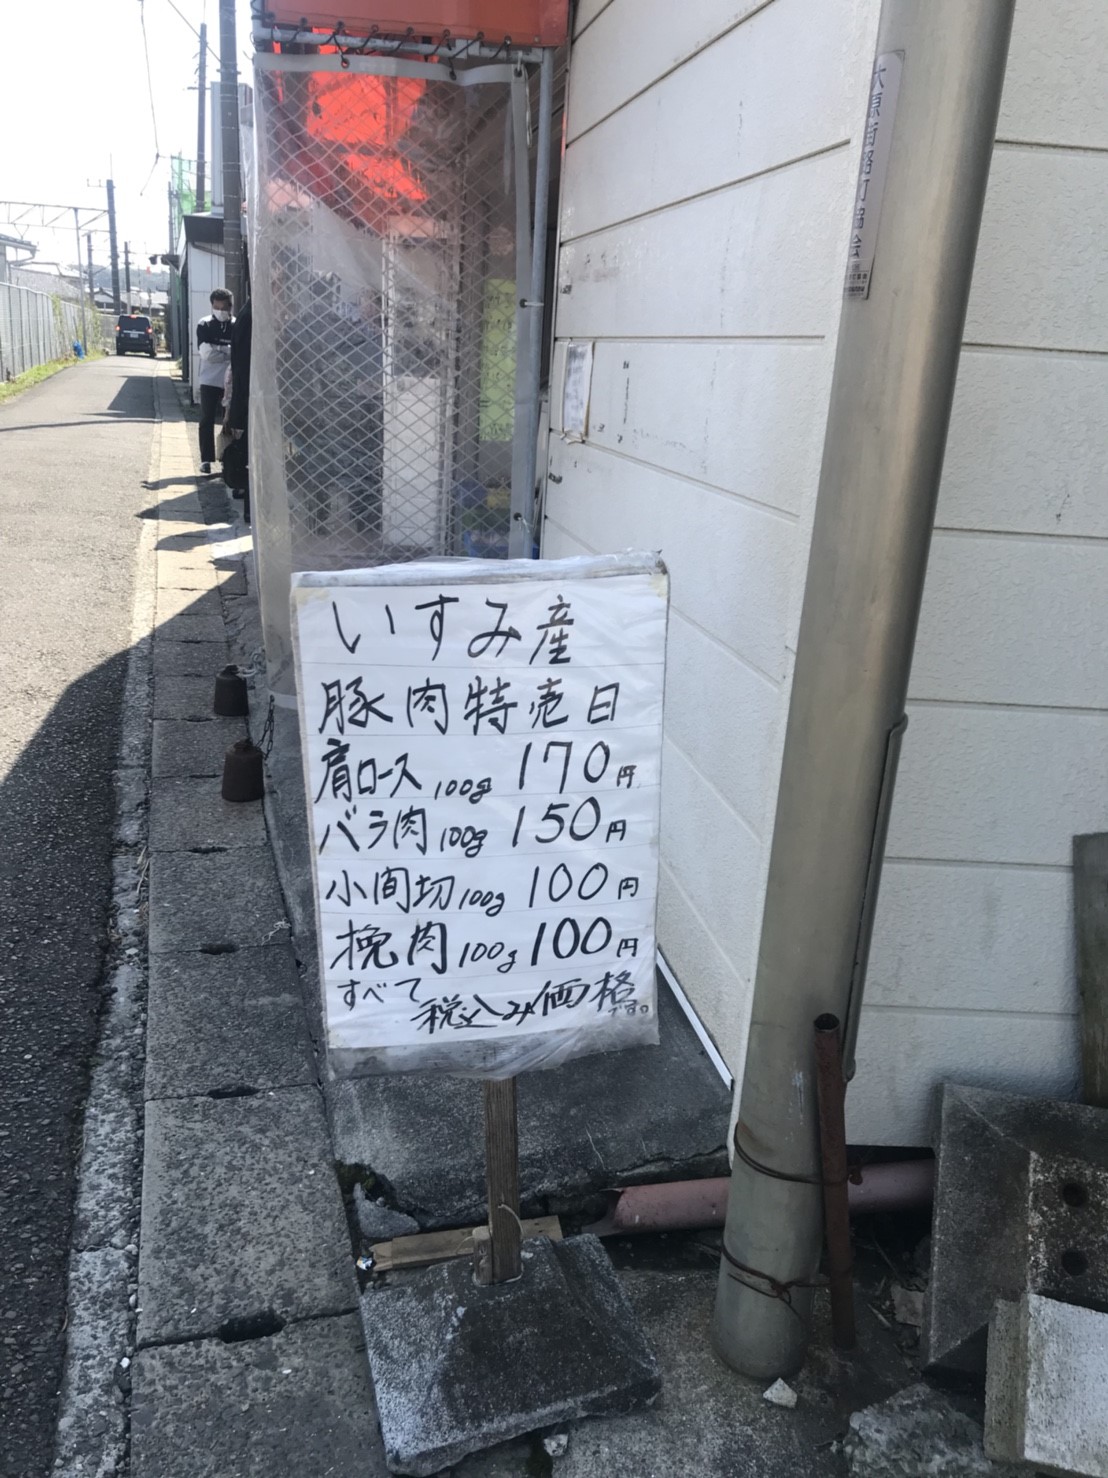 いすみ産
豚肉特売日
肩ロース 100g 170円
バラ肉 100g 150円
小間切 100g 100円
挽肉 100g 100円
すべて
税込み価格
です。
大原街路灯協会